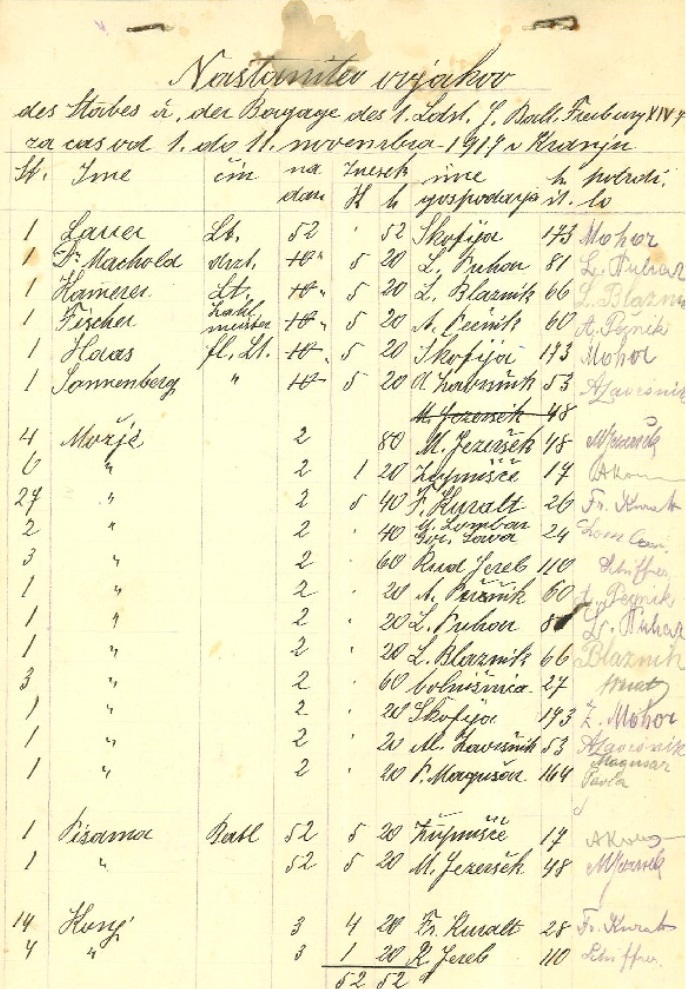 Nastanitev vojakov
des Stabes u. der Bagage des 1. Ldst. J. Batl. Freiburg XIV 4
za čas od 1. do 11. novembra 1917 v Kranju
Št. Ime čin na dan Znesek K h ime gospodarja h. št. potrdilo
1 Lauer Lt. 52 . 52 Škofija 173 Mohor
1 Dr. Machold Arzt. 10 " 5 20 L. Puhar 81 L. Puhar
1 Kamerer Lt. 10 " 5 20 L. Blaznik 66 L. Blaznik
1 Fischer Zahlmeister 10 " 5 20 A. Pečnik 60 A. Pečnik
1 Haas fl. Lt. 10 " 5 20 Škofija 173 Mohor
1 Sonnenberg " 10 5 20 A. Završnik 53 A Završnik
M. Jezeršek 48
4 Možje 2 80 M. Jezeršek 48 M Jezeršek
6 " 2 1 20 Župnišče 17
27 " 2 5 40 F. Kuralt 26 Fr. Kuralt
2 " 2 . 40 Lombar Sava 24 Lombar
3 " 2 . 60 Rud Jereb 110 Schiffrer
1 " 2 . 20 A. Pečnik 60 A. Pečnik
1 " 2 . 20 L. Puhar 81 L. Puhar
1 " 2 . 20 L. Blaznik 66 Blaznik
3 " 2 . 60 bolnišnica 27
1 " 2 . 20 Škofija 173 Ž. Mohor
1 " 2 . 20 M. Završnik 53 A Završnik
1 " 2 . 20 P. Magušar 164 Magušar Pavla
1 Pisarna Batl 52 5 20 Župnišče 17
1 " 52 5 20 M. Jezeršek 48 M Jezeršek
14 Konji 3 4 20 Fr. Kuralt 28 Fr. Kuralt
4 " 3 1 20 R. Jereb 110 Schiffrer
52 52